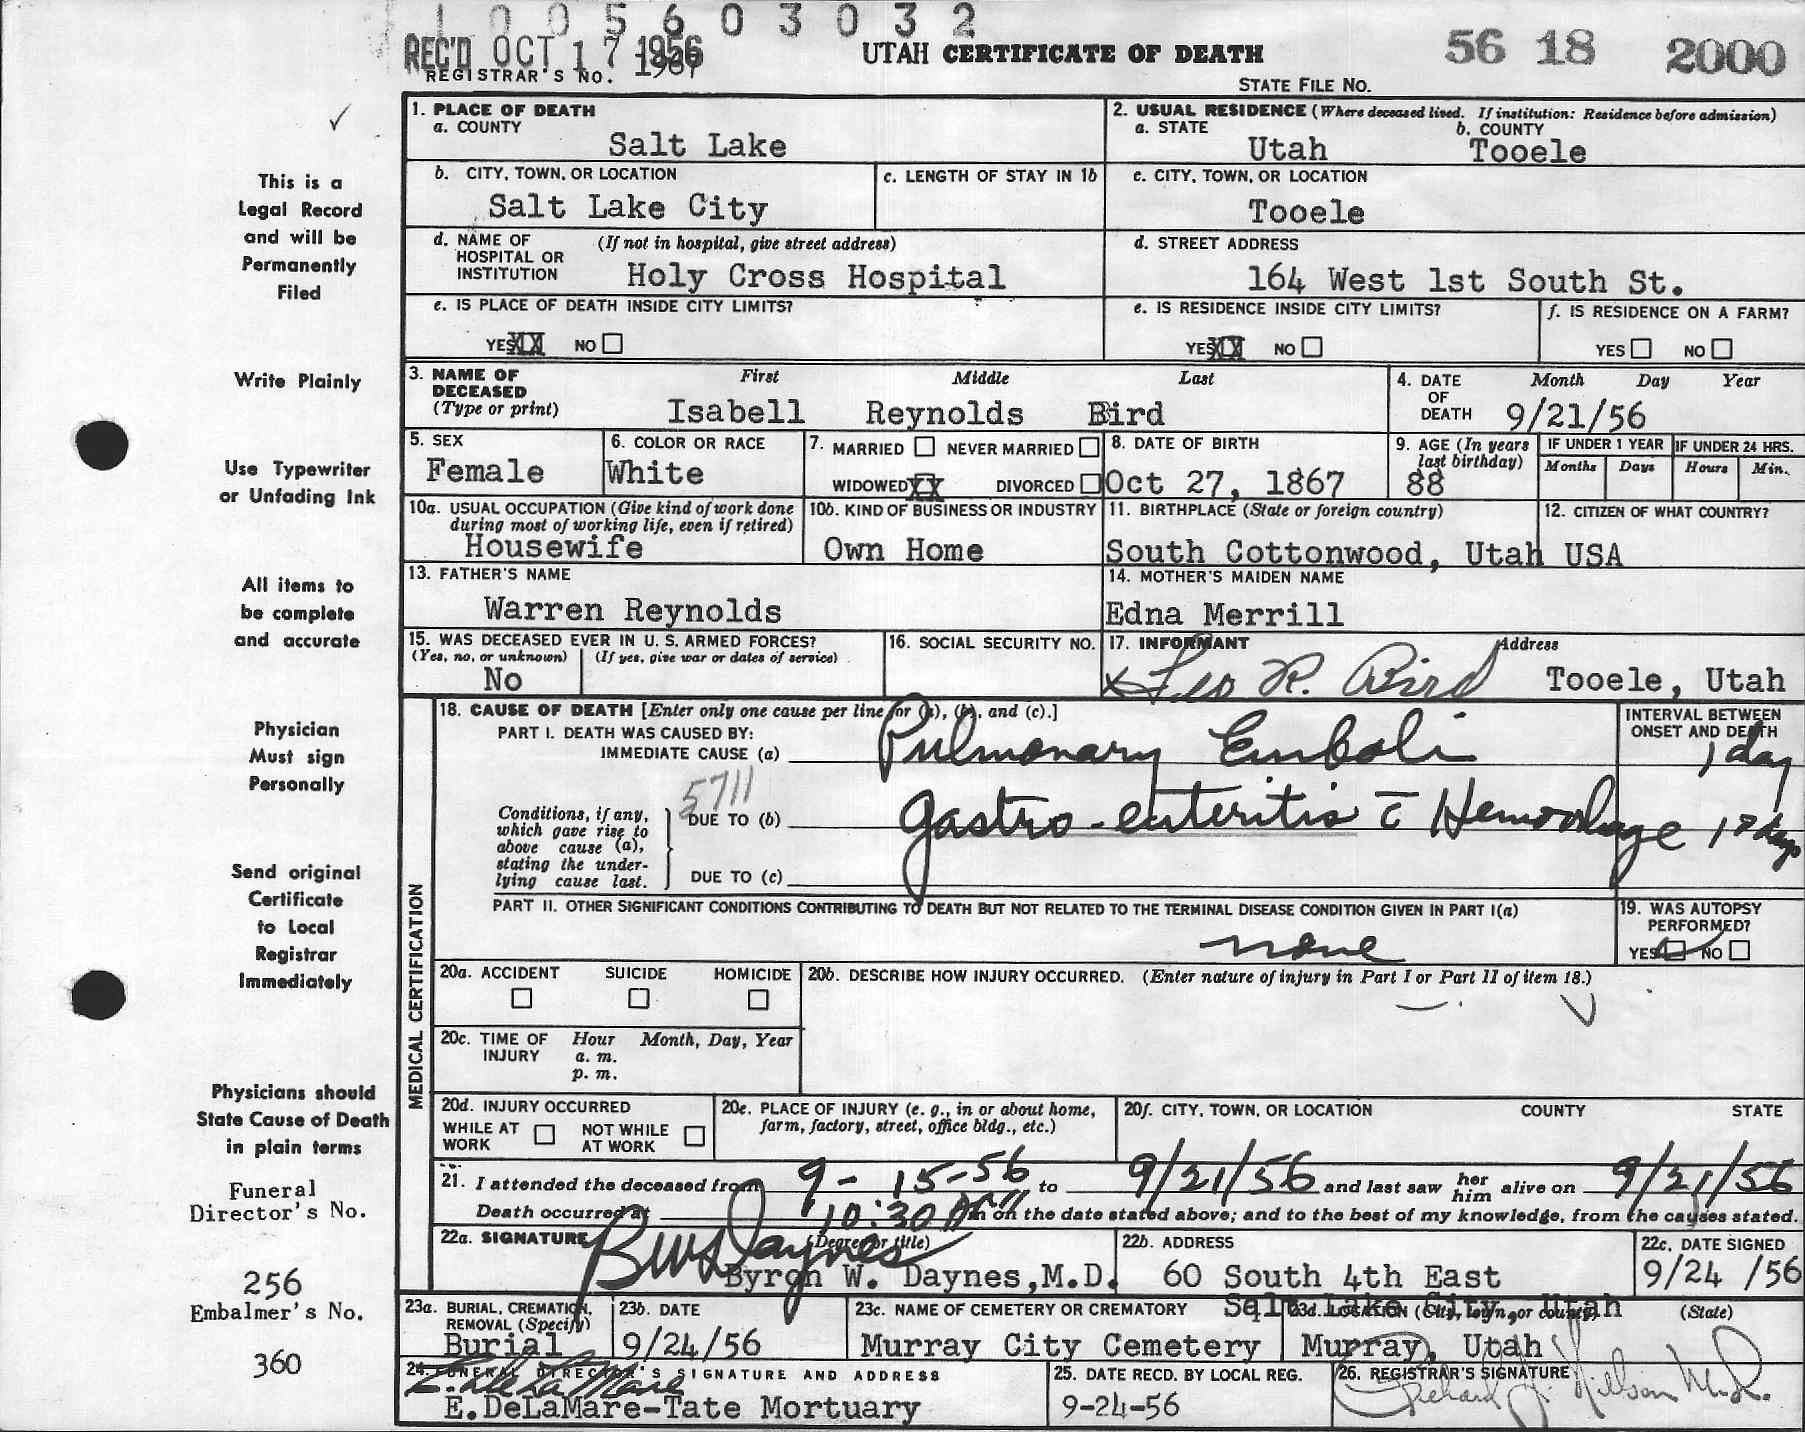 1 0 0 5 6 0 3 0 3 2
REC'D OCT 17 1956
REGISTRAR'S NO.
UTAH CERTIFICATE OF DEATH
56 18 2000
STATE FILE NO.
This is a
Legal Record
and will be
Permanently
Filed
Write Plainly
Use Typewriter
or Unfading Ink
All items to
be complete
and accurate
Physician
Must sign
Personally
Send original
Certificate
to Local
Registrar
Immediately
Physicians should
State Cause of Death
in plain terms
Funeral
Director's No.
256
Embalmer's No.
360
1. PLACE OF DEATH
a. COUNTY
Salt Lake
2. USUAL RESIDENCE (Where deceased lived. If institution: Residence before admission)
a. STATE b. COUNTY
Utah Tooele
b. CITY, TOWN, OR LOCATION
Salt Lake City
c. LENGTH OF STAY IN 1b
c. CITY, TOWN, OR LOCATION
Tooele
d. NAME OF (If not in hospital, give street address)
HOSPITAL OR
INSTITUTION Holy Cross Hospital
d. STREET ADDRESS
164 West 1st South St.
e. IS PLACE OF DEATH INSIDE CITY LIMITS?
YES XX NO
e. IS RESIDENCE INSIDE CITY LIMITS?
YES XX NO
f. IS RESIDENCE ON A FARM?
YES NO
3. NAME OF First Middle Last
DECEASED
(Type or print) Isabell Reynolds Bird
4. DATE Month Day Year
OF
DEATH 9/21/56
5. SEX
Female
6. COLOR OR RACE
White
7. MARRIED NEVER MARRIED
WIDOWED XX DIVORCED
8. DATE OF BIRTH
Oct 27, 1867
9. AGE (In years
last birthday)
88
IF UNDER 1 YEAR IF UNDER 24 HRS.
Months Days Hours Min.
10a. USUAL OCCUPATION (Give kind of work done
during most of working life, even if retired)
Housewife
10b. KIND OF BUSINESS OR INDUSTRY
Own Home
11. BIRTHPLACE (State or foreign country)
South Cottonwood, Utah
12. CITIZEN OF WHAT COUNTRY?
USA
13. FATHER'S NAME
Warren Reynolds
14. MOTHER'S MAIDEN NAME
Edna Merrill
15. WAS DECEASED EVER IN U. S. ARMED FORCES?
(Yes, no, or unknown) (If yes, give war or dates of service)
No
16. SOCIAL SECURITY NO.
17. INFORMANT Address
x Leo R. Bird Tooele, Utah
MEDICAL CERTIFICATION
18. CAUSE OF DEATH [Enter only one cause per line for (a), (b), and (c).]
INTERVAL BETWEEN
ONSET AND DEATH
PART I. DEATH WAS CAUSED BY:
IMMEDIATE CAUSE (a) Pulmonary Emboli 1 day
5711
Conditions, if any,
which gave rise to
above cause (a),
stating the under-
lying cause last.
DUE TO (b) Gastro-enteritis c̄ Hemorrhage days
DUE TO (c)
PART II. OTHER SIGNIFICANT CONDITIONS CONTRIBUTING TO DEATH BUT NOT RELATED TO THE TERMINAL DISEASE CONDITION GIVEN IN PART I(a)
none
19. WAS AUTOPSY
PERFORMED?
YES NO
20a. ACCIDENT SUICIDE HOMICIDE
20b. DESCRIBE HOW INJURY OCCURRED. (Enter nature of injury in Part I or Part II of item 18.)
20c. TIME OF Hour Month, Day, Year
INJURY a. m.
p. m.
20d. INJURY OCCURRED
WHILE AT NOT WHILE
WORK AT WORK
20e. PLACE OF INJURY (e. g., in or about home,
farm, factory, street, office bldg., etc.)
20f. CITY, TOWN, OR LOCATION COUNTY STATE
21. I attended the deceased from 9-15-56 to 9/21/56 and last saw her him alive on 9/21/56
Death occurred at 10:30 A m on the date stated above; and to the best of my knowledge, from the causes stated.
22a. SIGNATURE (Degree or title)
BW Daynes
Byron W. Daynes, M.D.
22b. ADDRESS
60 South 4th East
Salt Lake City, Utah
22c. DATE SIGNED
9/24 /56
23a. BURIAL, CREMATION,
REMOVAL (Specify)
Burial
23b. DATE
9/24/56
23c. NAME OF CEMETERY OR CREMATORY
Murray City Cemetery
23d. LOCATION (City, town, or county) (State)
Murray, Utah
24. FUNERAL DIRECTOR'S SIGNATURE AND ADDRESS
E. DeLaMare
E.DeLaMare-Tate Mortuary
25. DATE RECD. BY LOCAL REG.
9-24-56
26. REGISTRAR'S SIGNATURE